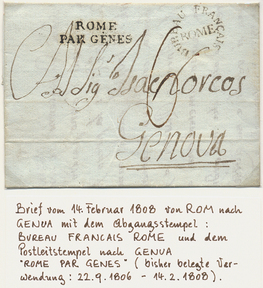 ROME
PAR GÊNES
BUREAU FRANÇAIS
ROME
Genova
Brief vom 14. Februar 1808 von ROM nach
GENUA mit dem Abgangsstempel :
BUREAU FRANCAIS ROME und dem
Postleitstempel nach GENUA
"ROME PAR GENES" ( bisher belegte Ver-
wendung : 22.9.1806 - 14.2.1808 ) .